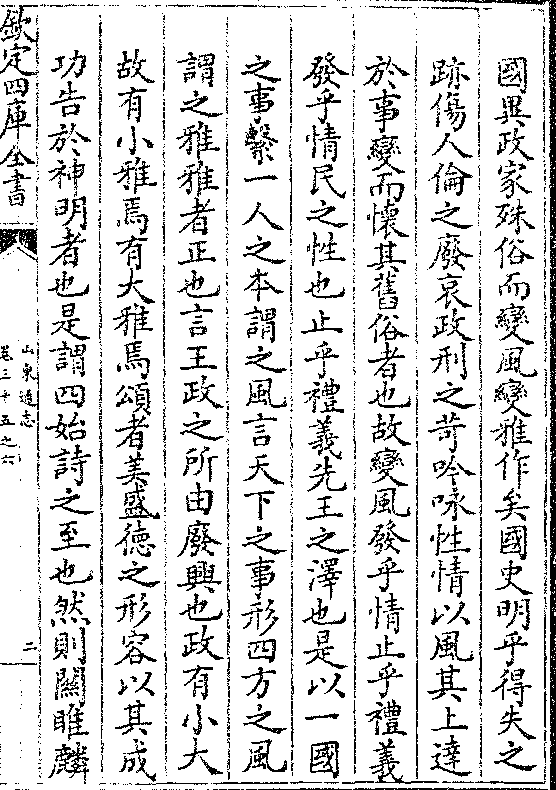 國異政家殊俗而變風變雅作矣國史明乎得失之
跡傷人倫之廢哀政刑之苛吟咏性情以風其上達
於事變而懷其舊俗者也故變風發乎情止乎禮義
發乎情民之性也止乎禮義先王之澤也是以一國
之事繫一人之本謂之風言天下之事形四方之風
謂之雅雅者正也言王政之所由廢興也政有小大
故有小雅焉有大雅焉頌者美盛德之形容以其成
功告於神明者也是謂四始詩之至也然則關雎麟
欽定四庫全書
山東通志
卷三十五之六
二